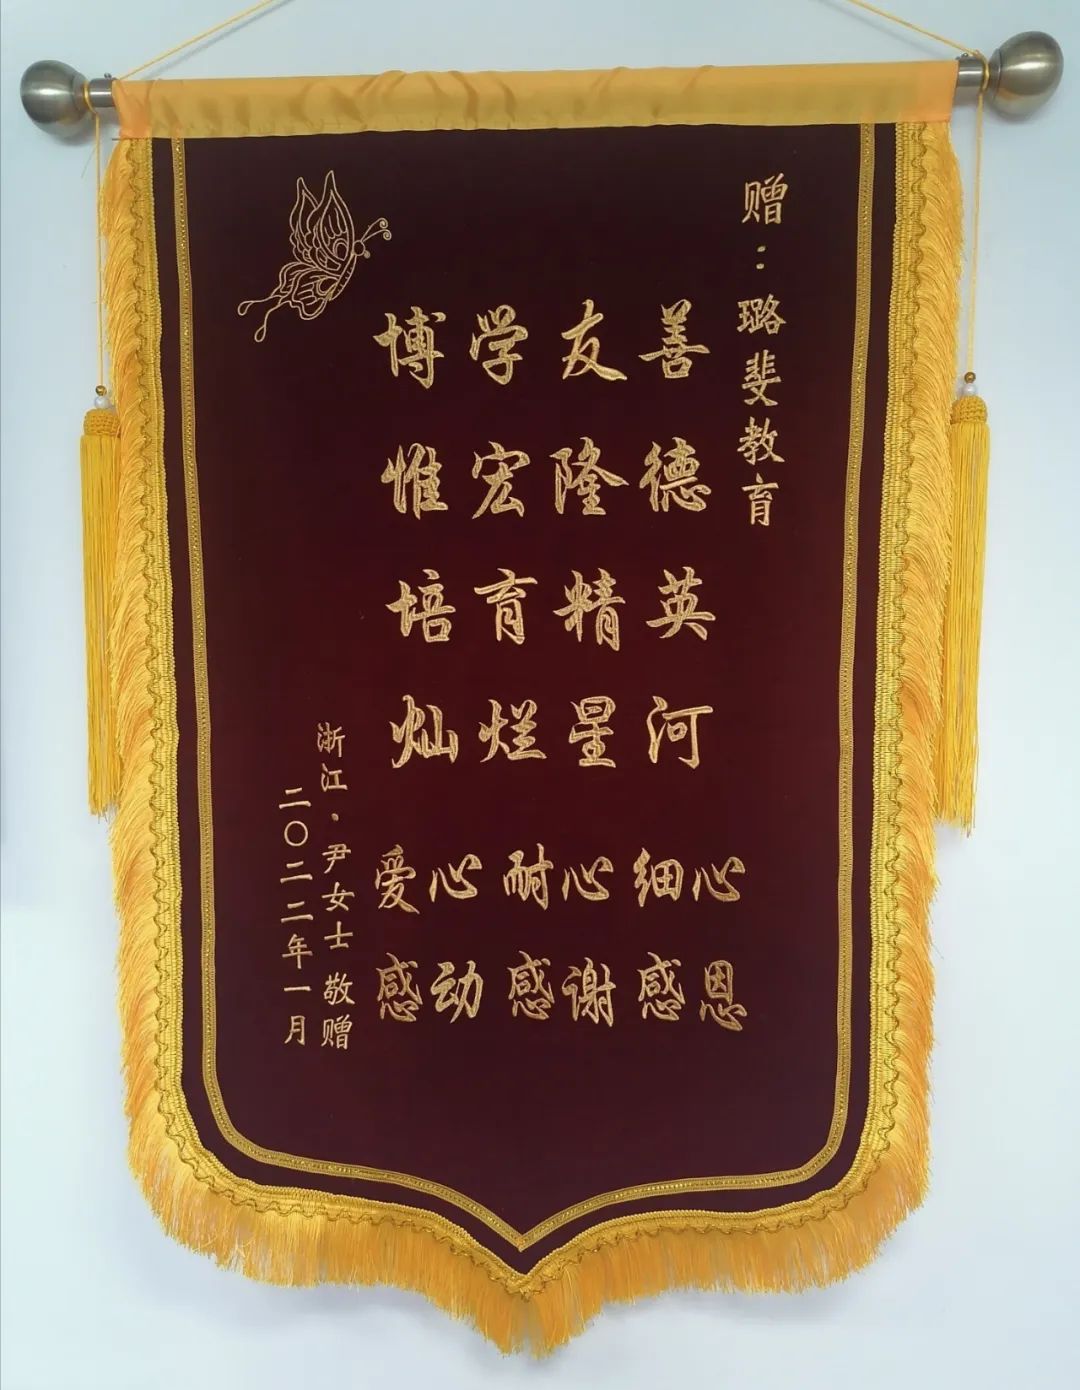 赠：璐斐教育
博学友善
惟宏隆德
培育精英
灿烂星河
爱心 耐心 细心
感动 感谢 感恩
浙江·尹女士 敬赠
二〇二二年一月